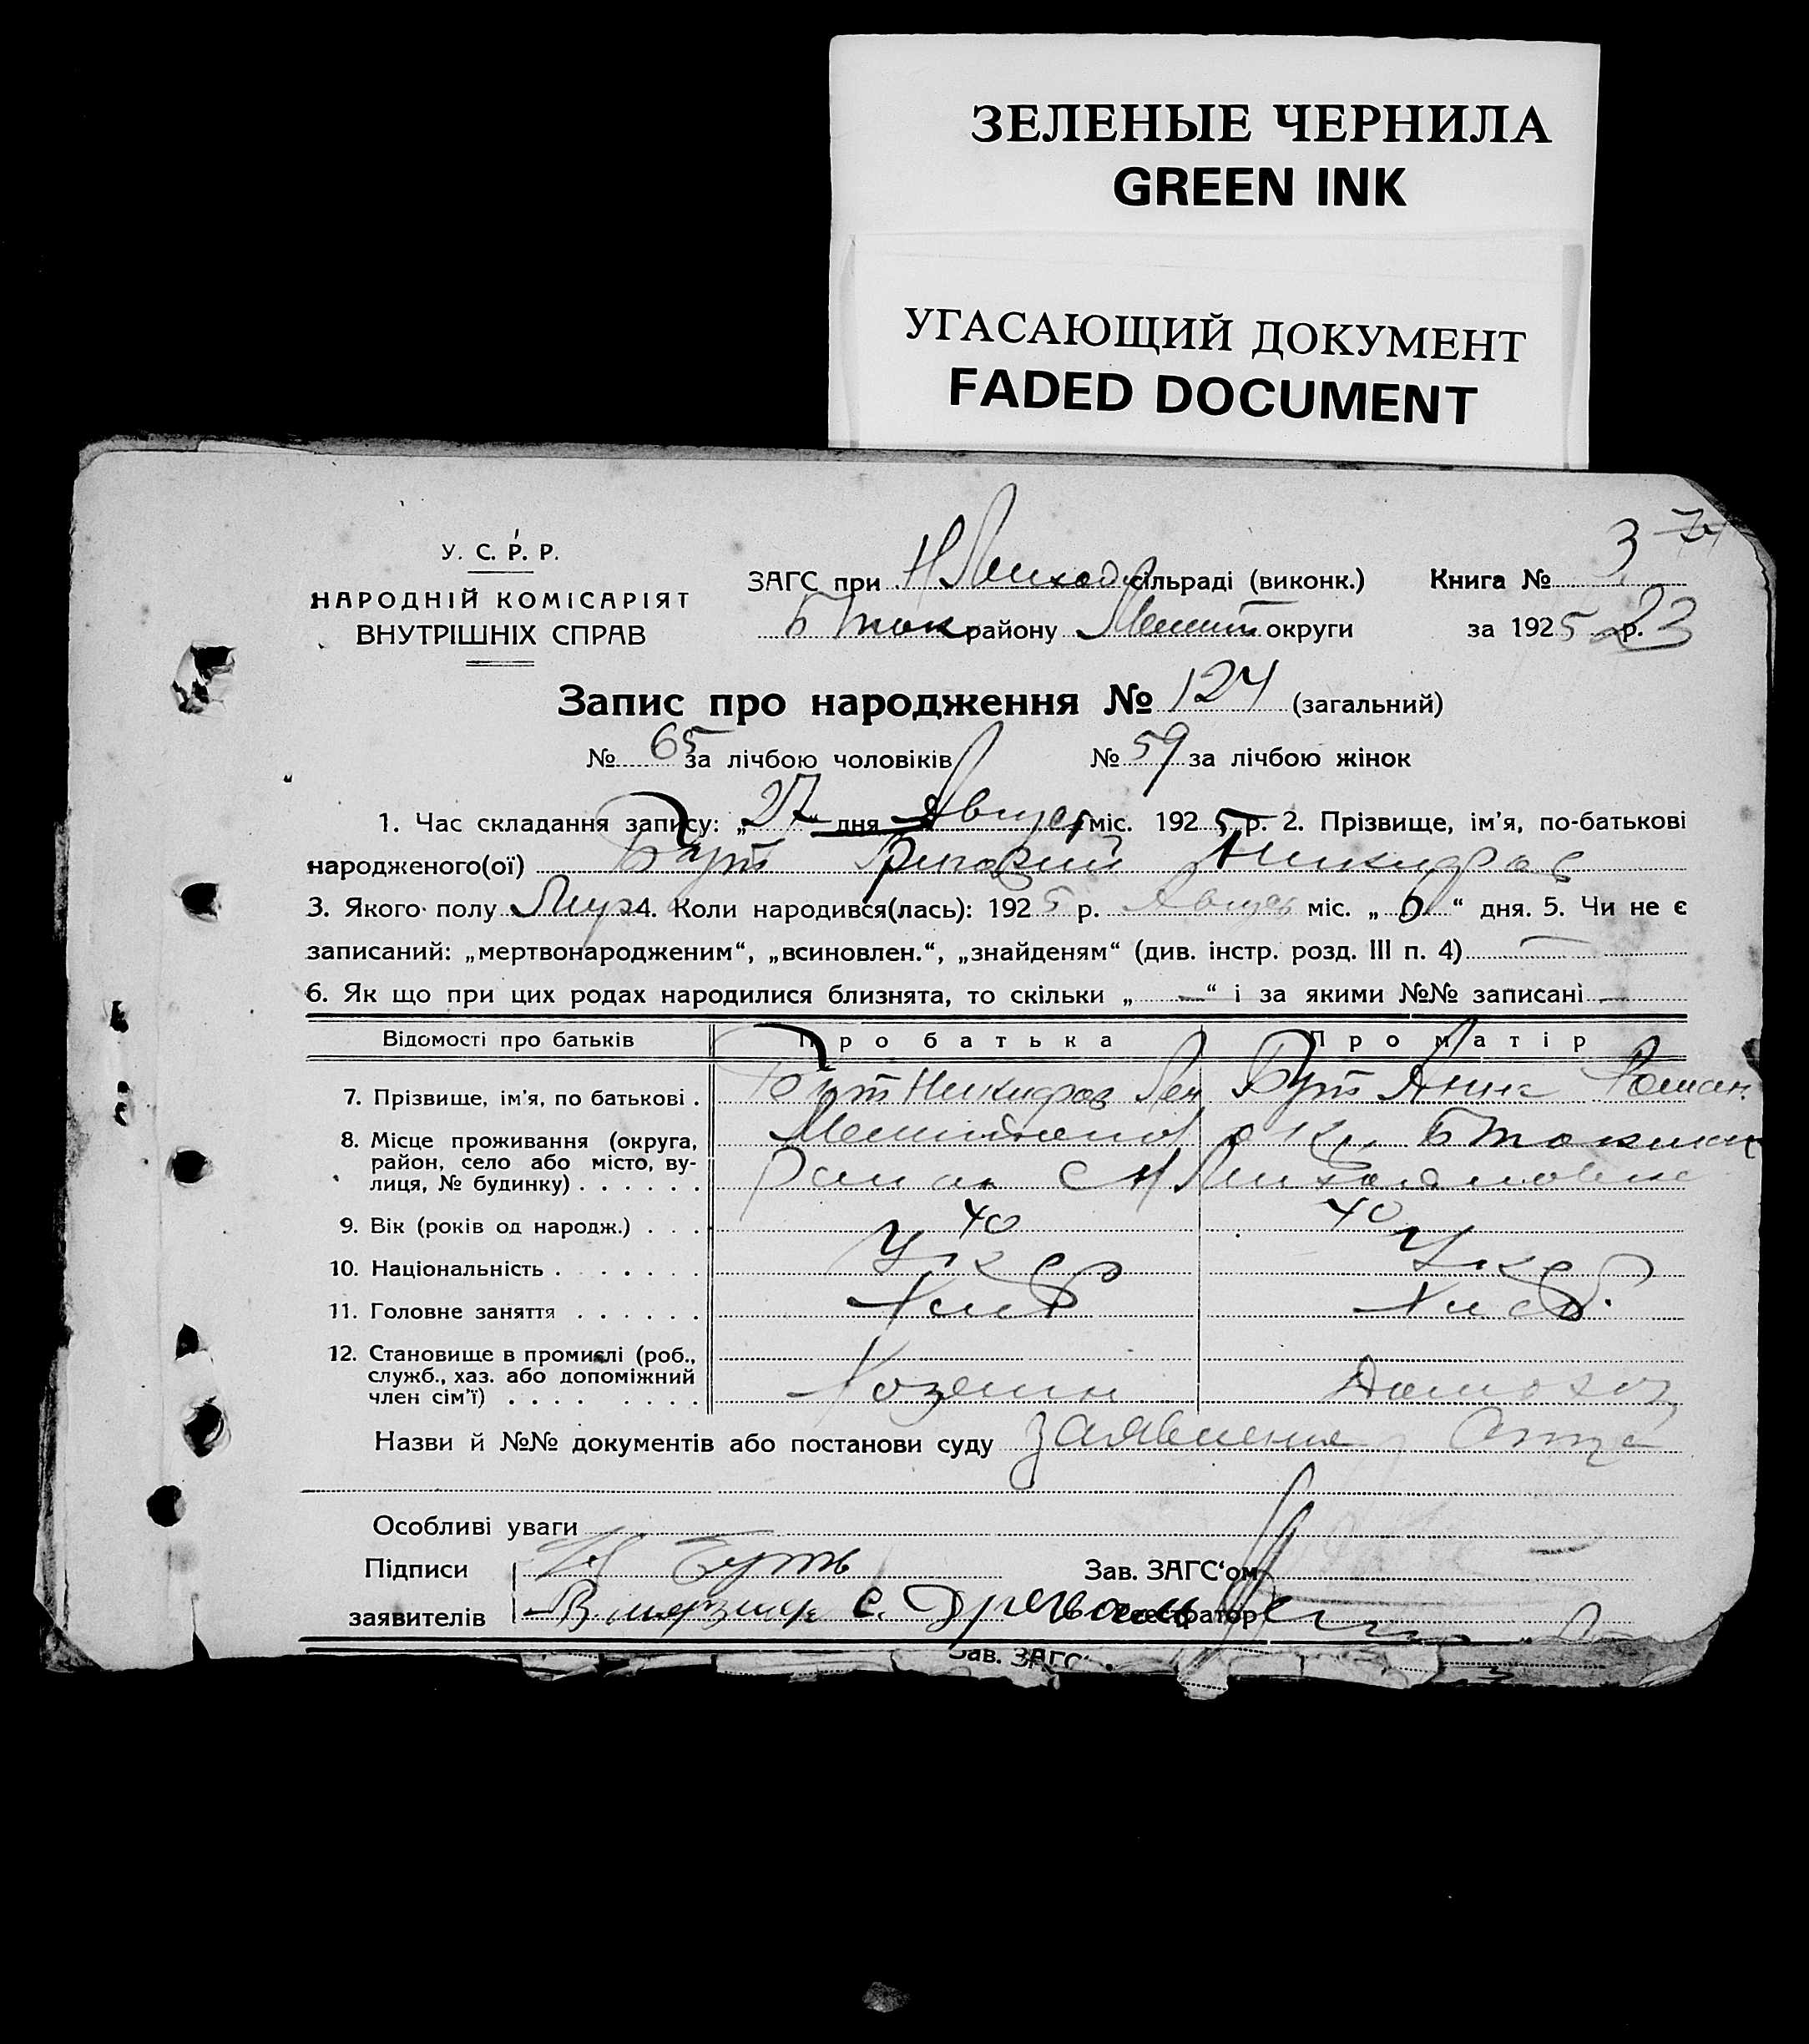 ЗЕЛЕНЫЕ ЧЕРНИЛА
GREEN INK
УГАСАЮЩИЙ ДОКУМЕНТ
FADED DOCUMENT
У. С. Р. Р.
НАРОДНІЙ КОМІСАРІЯТ
ВНУТРІШНІХ СПРАВ
ЗАГС при сільраді (виконк.) Книга № 3
Б Ток району Мелит округи за 1925 р. 23
Запис про народження № 124 (загальний)
№ 65 за лічбою чоловіків № 59 за лічбою жінок
1. Час складання запису: „27“ дня Август міс. 1925 р. 2. Прізвище, ім'я, по-батькові
народженого(ої) Бут Григорий Никифоров
3. Якого полу Муж 4. Коли народився(лась): 1925 р. Август міс. „6“ дня. 5. Чи не є
записаний: „мертвонародженим“, „всиновлен.“, „знайденям“ (див. інстр. розд. III п. 4) —
6. Як що при цих родах народилися близнята, то скільки „ — “ і за якими №№ записані —
Відомості про батьків Про батька Про матір
7. Прізвище, ім'я, по батькові . Бут Никифор Бут Анна Роман.
8. Місце проживання (округа, район, село або місто, вулиця, № будинку) . . . . . . Мелитопол окр. Б Токмак
Район С Н
9. Вік (років од народж.) . . . 40 40
10. Національність . . . . . . Укр Укр
11. Головне заняття . . . . . . Хлеб Хлеб.
12. Становище в промислі (роб.,
служб., хаз. або допоміжний
член сім'ї) . . . . . . . . Хозяин Домохоз
Назви й №№ документів або постанови суду Заявление Отца
Особливі уваги
Підписи Н Буть Зав. ЗАГС'ом
заявителів Реєстратор
Зав. ЗАГС'